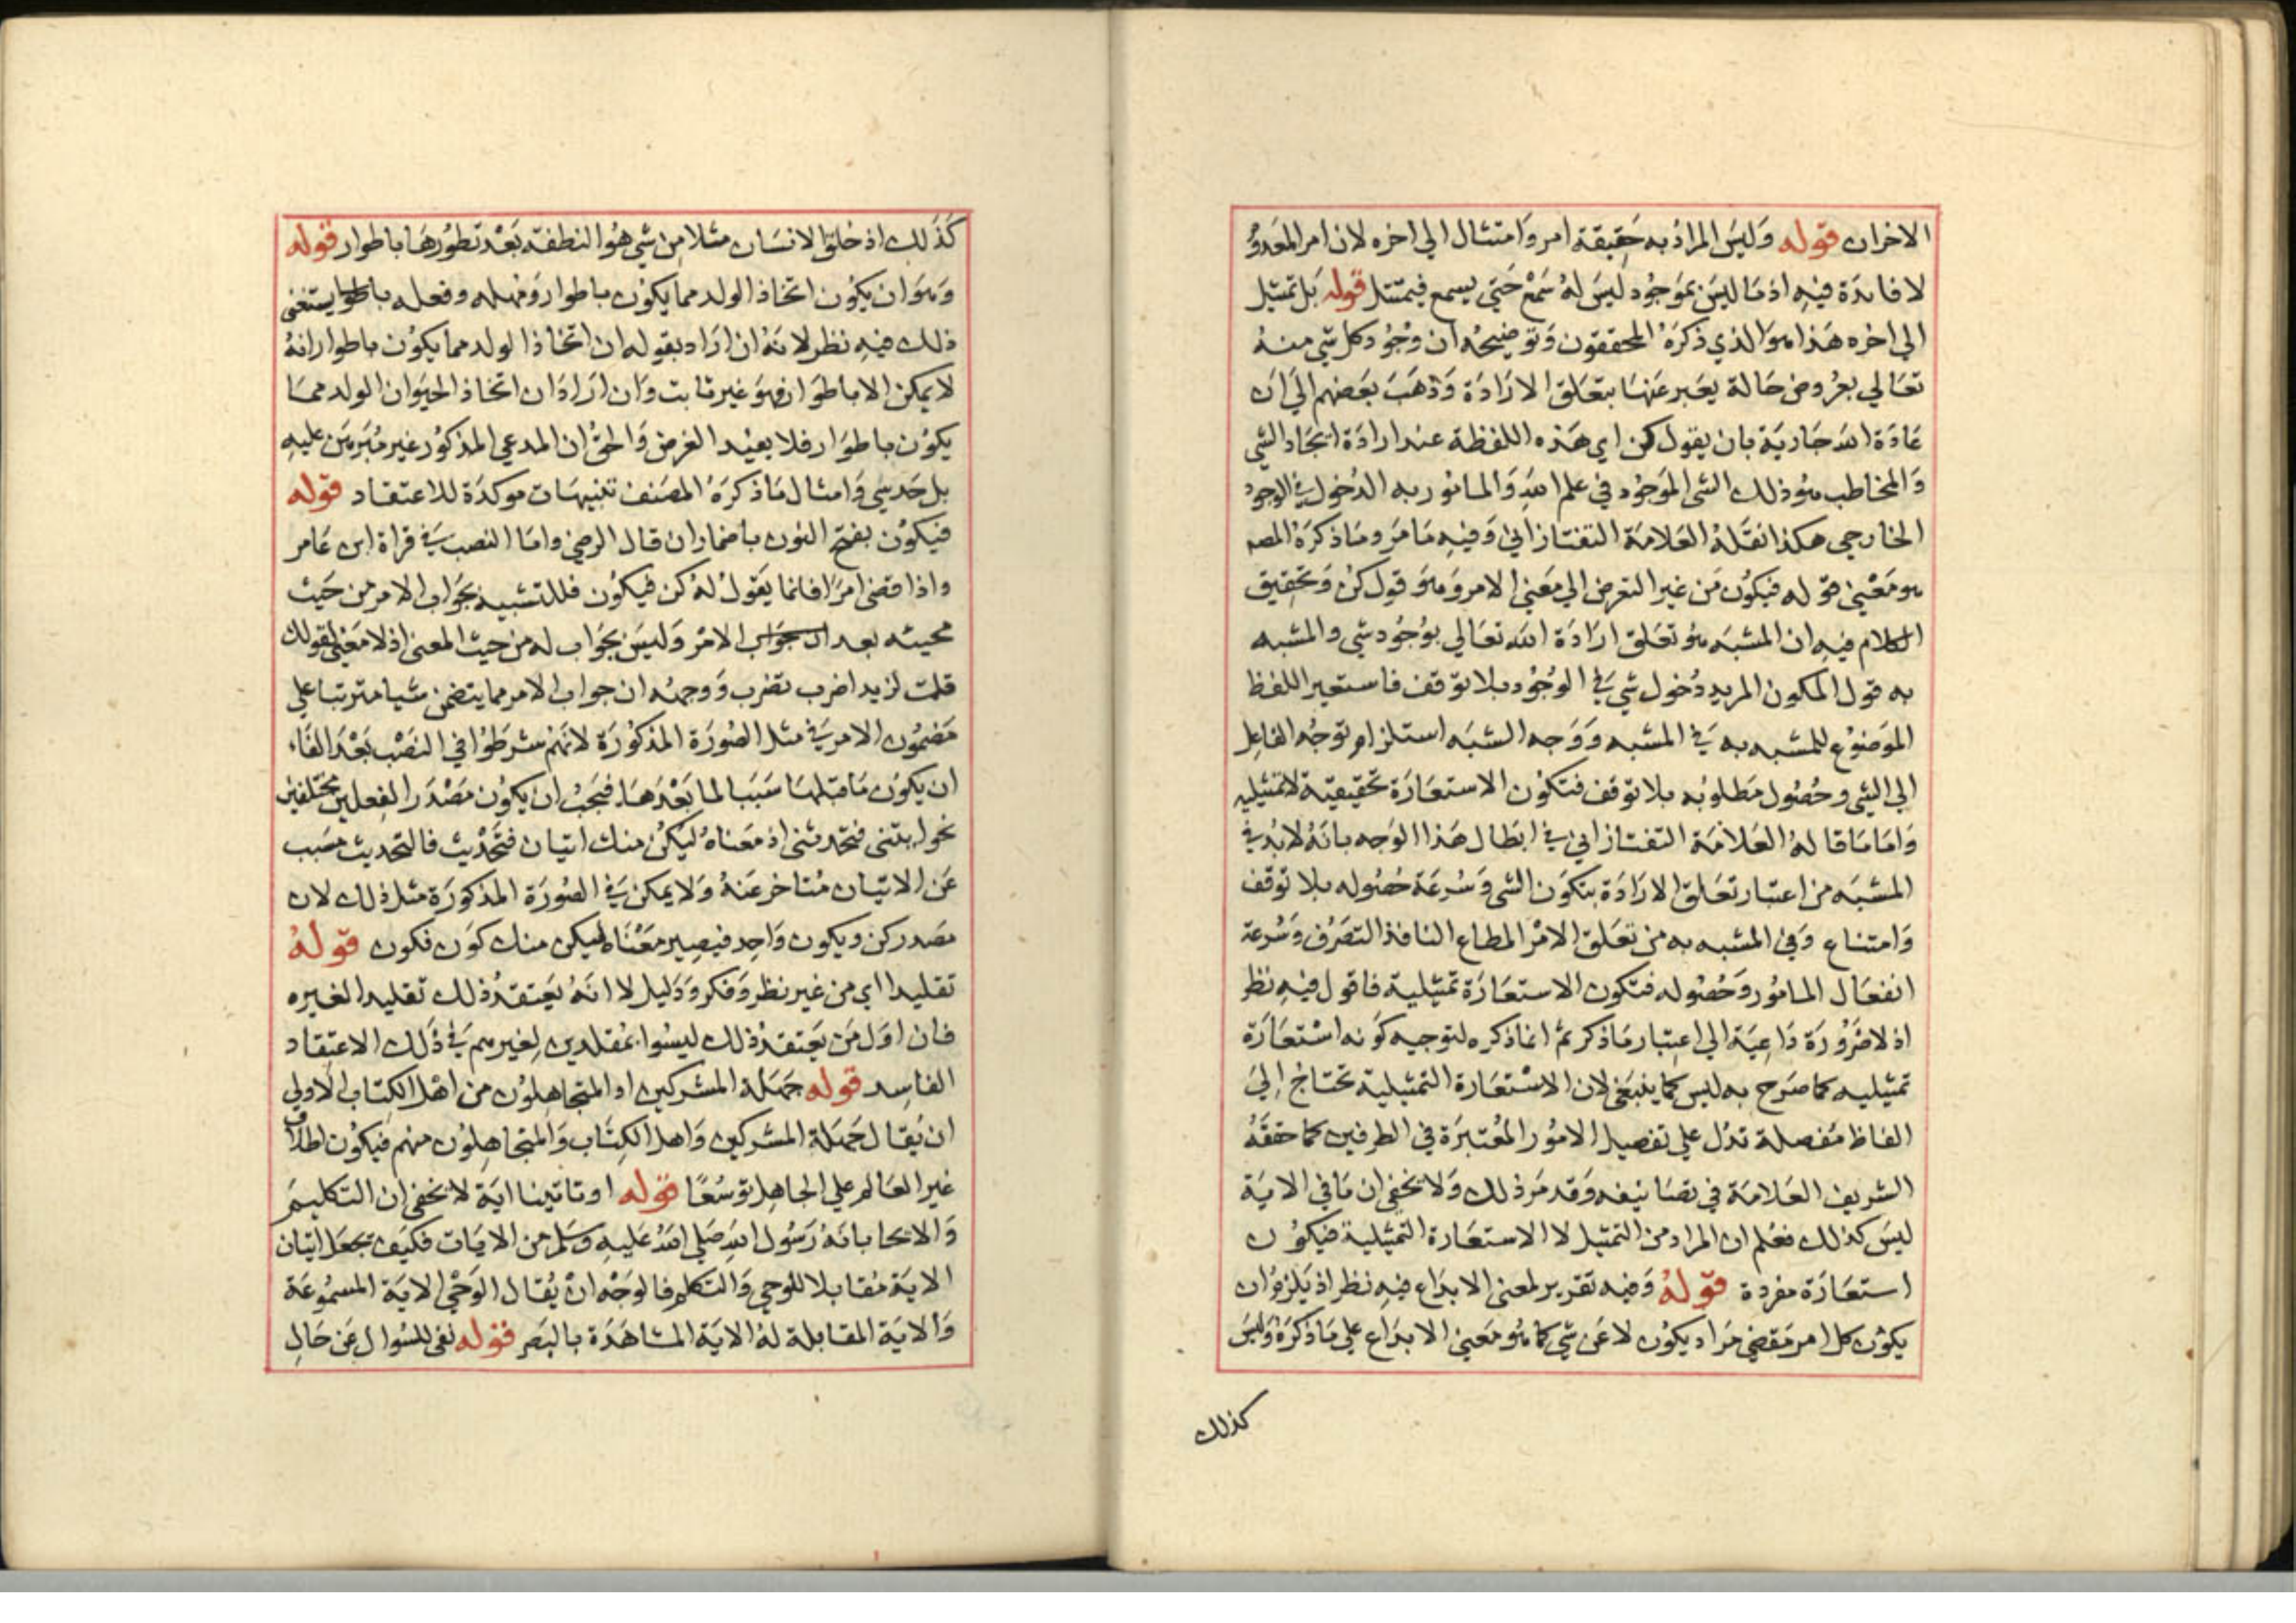 الاخران قوله وَليسَ المرادُ به حَقيقة امر وَامتثال الي اخره لان امر المعدوُ
لا فايدَة فيه اذ مَا ليسَ بموَجوُد ليسَ لهُ سَمْع حَتي يسمع فيمتثل قوله بَل تمثيل
الي اخره هَذا هوَ الذي ذكرَهُ المحققون وَتوضيحُه ان وُجُود كل شي منهُ
تعَالي بعرُوض حَالة يعَبر عَنهَا بتعَلق الارَادَة وَذهَبَ بعَضهم الَي ان
عَادَة الله جَاريَة بان يقول كن اي هَذه اللفظة عند ارادَة ايجَاد الشي
وَالمخاطب هوُ ذلك الشي الموَجوُد في علم اللهِ وَالمامُور به الدُخول في الوجود
الخارجي هكذا نقَلهُ العَلامَة التفتازاني وَفيهِ مَا مَر ومَا ذكرَهُ المصه
هو مَعْني قوله فيكوُن مَن غير التعرض الي معَني الامر وَهوَ قول كنْ وَتحقيق
الكلام فيهِ ان المشبَه هوُ تعَلق ارَادَة الله تعَالي بوُجوُد شي والمشبه
به قول المكون المريد دُخول شي في الوُجوُد بلا توَقف فاستعير اللفظ
الموَضوُع للمشبه به في المشبه وَوَجه الشبَه استلزام توَجُه الفاعِل
الي الشي وحُصُول مَطلوبُه بلا توقف فتكوُن الاستعَارَة تحقيقيَة لا تمثيليه
وَاما مَا قالهُ العَلامَة التفتازاني في ابطال هَذا الوَجه بانهُ لا بدُ في
المشبَه من اعتبار تعَلق الارَادَة بتكوَن الشي وَسُرعَة حُصُوله بلا توقف
وَامتناع وَفي المشبه به من تعَلق الامْر المطاع النافذ التصَرُف وَسُرعة
انفعَال المامُور وَحُصُوله فتكون الاستعَارَة تمثيلية فاقول فيهِ نظر
اذ لا ضَرُورَة دَاعِيَة الي اعتبار مَا ذكر ثم انما ذكره لتوجيه كوَنه اسْتعَارَة
تمثيليه كما صَرح به ليس كما ينبغَي لان الاسْتعَارة التمثيلية تحتاج اِليَ
الفاظ مُفصلة تدُل علي تفصيل الامُور المعُتبرَة في الطرفين كما حققَهُ
الشريف العَلامَة في تصَانيفه وَقد مَر ذلك وَلا يخفي ان مَا في الايَة
ليسَ كذلك فعُلم ان المراد من التمثيل لا الاستعَارة التمثيلية فيكوُن
استعَارَة مفردة قوَلهُ وَفيه تقرير لمعني الابدَاع فيهِ نظر اذ يَلزمُ ان
يكوُن كل امر مَقضي مَراد يكوُن لا عَن شي كما هوُ معَني الابدَاع علي مَا ذكرَهُ وَليسَ
كذلك
كَذَلك اذ خلق الانسَان مثلا من شي هوُ النطفة بَعْد تطوُرهَا باطوار قوله
وَهوَ ان يكوُن اتخاذ الولد مما يكوُن باطوار وَمُهله وفعله يستغني
ذلك فيهِ نظر لانهُ ان ارَاد بقوله ان اتخاذ الولد مما يكوُن باطوار انهُ
لا يمكن الا باطوَار فهوَ غير ثابت وَان ارَادَ ان اتخاذ الحيوَان الولد ممَا
يكوُن باطوَار فلا يفيْد الغرض وَالحقُ ان المدعي المذكوُر غير مُبَرهَن عليهِ
بل حَدسِي وَامثال مَا ذكرَهُ المصَنف تنبيهَات موكدَة للاعتقاد قوله
فيكوُن بفتح النوُن باضمار ان قال الرضي وامَا النصب في قراة ابن عَامر
واذا قضي امرًا فانما يقوَلُ لهُ كن فيكوُن فللتشبيه بجَواب الامر من حَيث
مجيئه بعد الامْر وَليسَ بجَواب له من حيث المعني اذ لا معَني لقولك
قلت لزيد اضرب تضرب وَوجههُ ان جواب الامر مما يتضمن شيا مترتبا علي
مَضموُن الامر في مثل الصُورَة المذكوُرَة لانَهُم شرطوُا في النصْب بَعْدَ الفَاء
ان يكوُن مَا قبلهَا سَببَا لما بَعْدَهَا فيجَبُ ان يكوُن مَصْدَر الفِعلين مختلفين
نحو ايتني فتحدثني اذ معَناهُ ليَكن منك اتيان فتَحْديث فالتحديث مسَبب
عَن الاتيان مُتاخر عَنهُ وَلا يمكن في الصُورَة المذكورَة مثل ذلك لان
مصَدر كن ويكون وَاحِد فيصِير معَْناه ليكن منك كوَن فكون قوله
تقليدا اي من غير نظر وَفكر وَدَليل لا انَهُ يعَتقدُ ذلك تقليدا لغيره
فان اوَل مَن يعَتقدُ ذلك ليسُوا بمُقلدين لغيرهم في ذَلك الاعتِقاد
الفاسِد قوله جَهَلة المشركين او المتجاهِلوُن من اهْل الكِتاب الاولي
ان يُقال جَهَلة المشركين وَاهل الكِتَاب وَالمتجاهِلوُن منهم فيكوُن اطلاق
غير العَالم علي الجاهِل توسُعًا قوله او تاتينا ايَة لا يخفي ان التكليمَ
وَالايحا بانهُ رَسُول اللهِ صَلي اللهُ عَليهِ وَسَلم من الايَات فكيَف يجعَل اتيان
الايَة مُقابلا للوحي وَالتكلم فالوَجْه انْ يُقال الوَحْي الايَة المسمُوعَة
وَالايَة المقابلة لهُ الايَة المشاهَدَة بالبصَر قوله نفي للسُوال عَن حَالِ